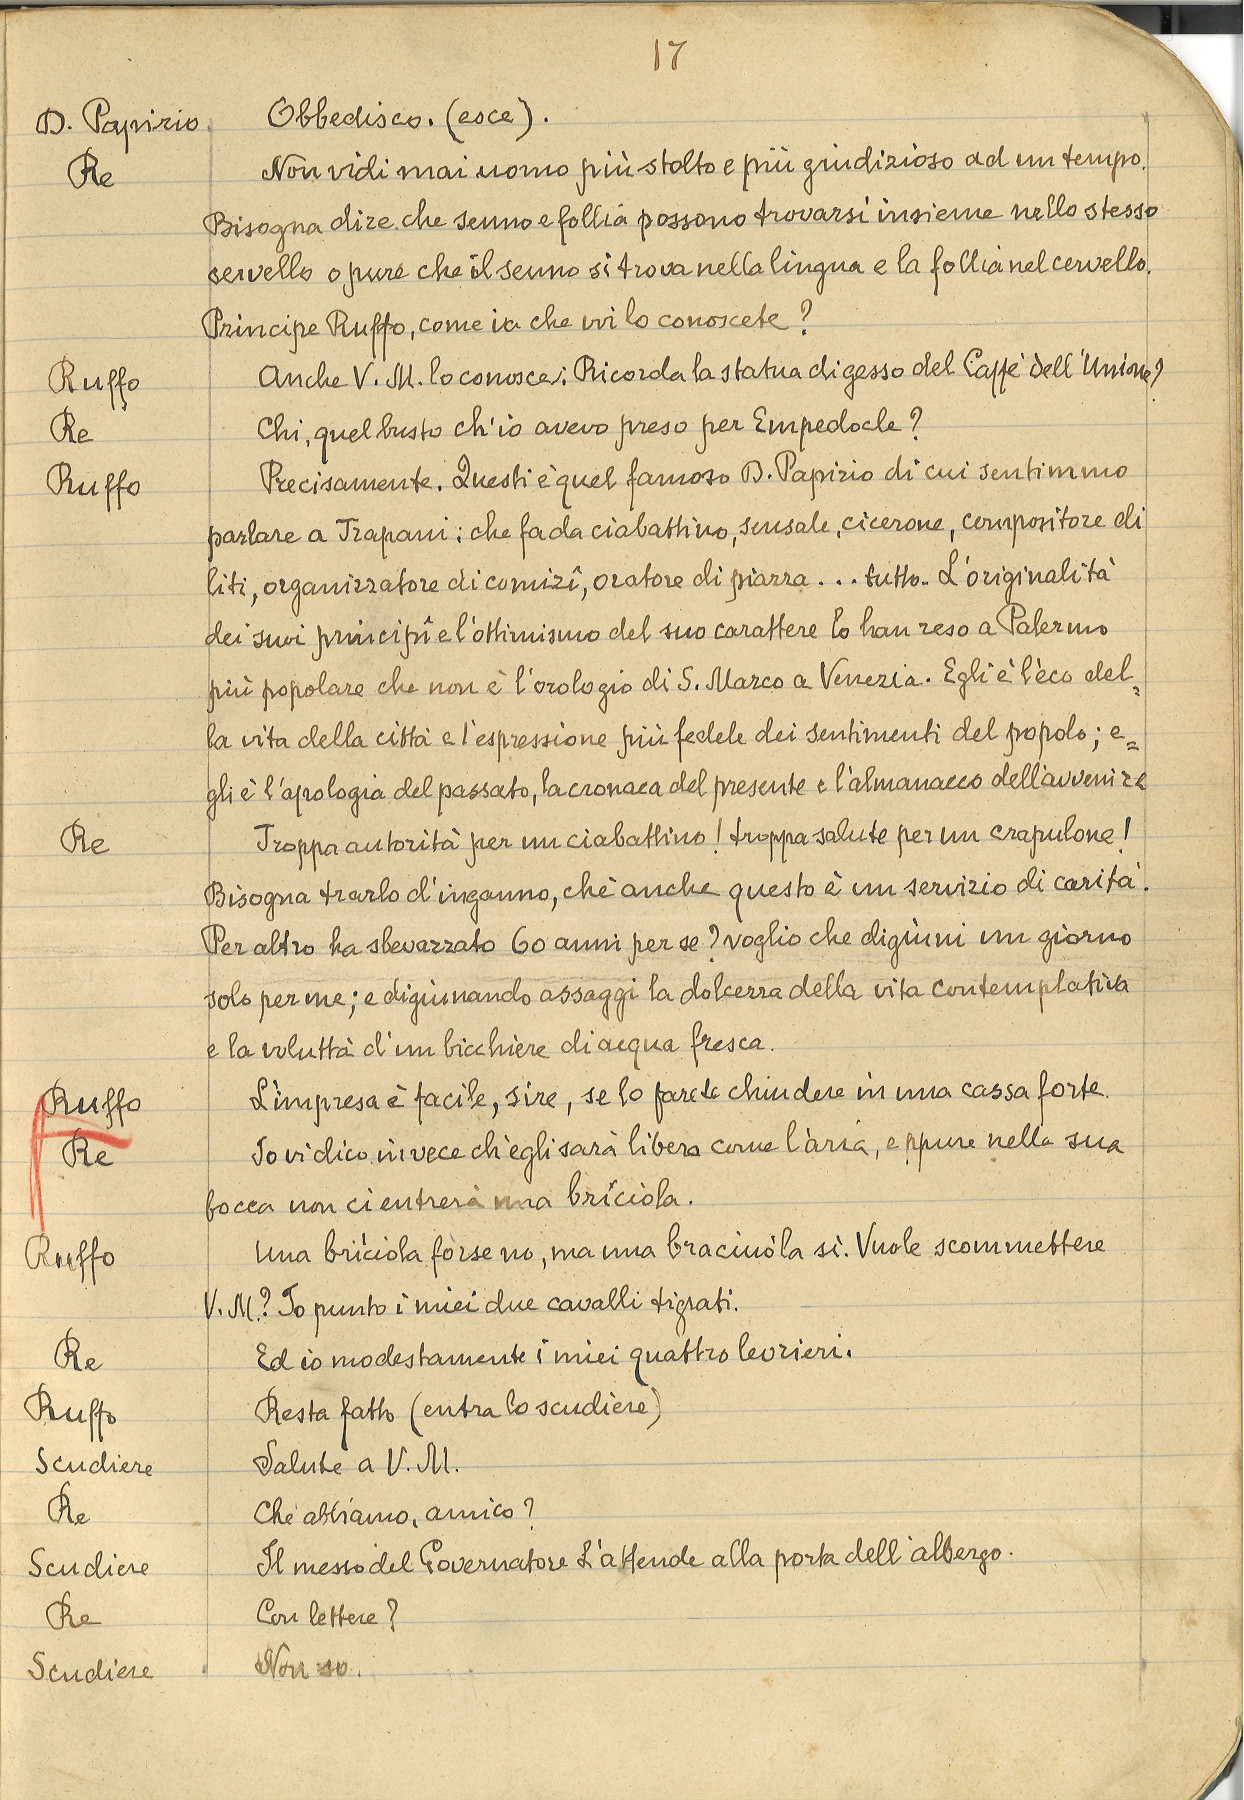 17
D. Papirio Obbedisco. (esce).
Re Non vidi mai uomo più stolto e più giudizioso ad un tempo.
Bisogna dire che senno e follia possono trovarsi insieme nello stesso
cervello oppure che il senno si trova nella lingua e la follia nel cervello.
Principe Ruffo, come va che voi lo conoscete?
Ruffo Anche V. M. lo conosce: Ricorda la statua di gesso del Caffè dell'Unione?
Re Chi, quel busto ch'io avevo preso per Empedocle?
Ruffo Precisamente. Questi è quel famoso D. Papirio di cui sentimmo
parlare a Trapani: che fa da ciabattino, sensale, cicerone, compositore di
liti, organizzatore di comizî, oratore di piazza ... tutto.. L'originalità
dei suoi principî e l'ottimismo del suo carattere lo han reso a Palermo
più popolare che non è l'orologio di S. Marco a Venezia. Egli è l'eco del=
la vita della città e l'espressione più fedele dei sentimenti del popolo; e=
gli è l'apologia del passato, la cronaca del presente e l'almanacco dell'avvenire
Re Troppa autorità per un ciabattino! troppa salute per un crapulone!
Bisogna trarlo d'inganno, chè anche questo è un servizio di carità.
Per altro ha sbevazzato 60 anni per se? voglio che digiuni un giorno
solo per me; e digiunando assaggi la dolcezza della vita contemplativa
e la voluttà d'un bicchiere di acqua fresca.
Ruffo L'impresa è facile, sire, se lo farete chiudere in una cassa forte.
Re Io vi dico invece ch'egli sarà libero come l'aria, eppure nella sua
bocca non ci entrerà una briciola.
Ruffo Una briciola forse no, ma una braciuola sì. Vuole scommettere
V. M.? Io punto i miei due cavalli tigrati.
Re Ed io modestamente i miei quattro levrieri.
Ruffo Resta fatto (entra lo scudiere)
Scudiere Salute a V. M.
Re Che abbiamo, amico?
Scudiere Il messo del Governatore L'attende alla porta dell'albergo.
Re Con lettere?
Scudiere Non so.